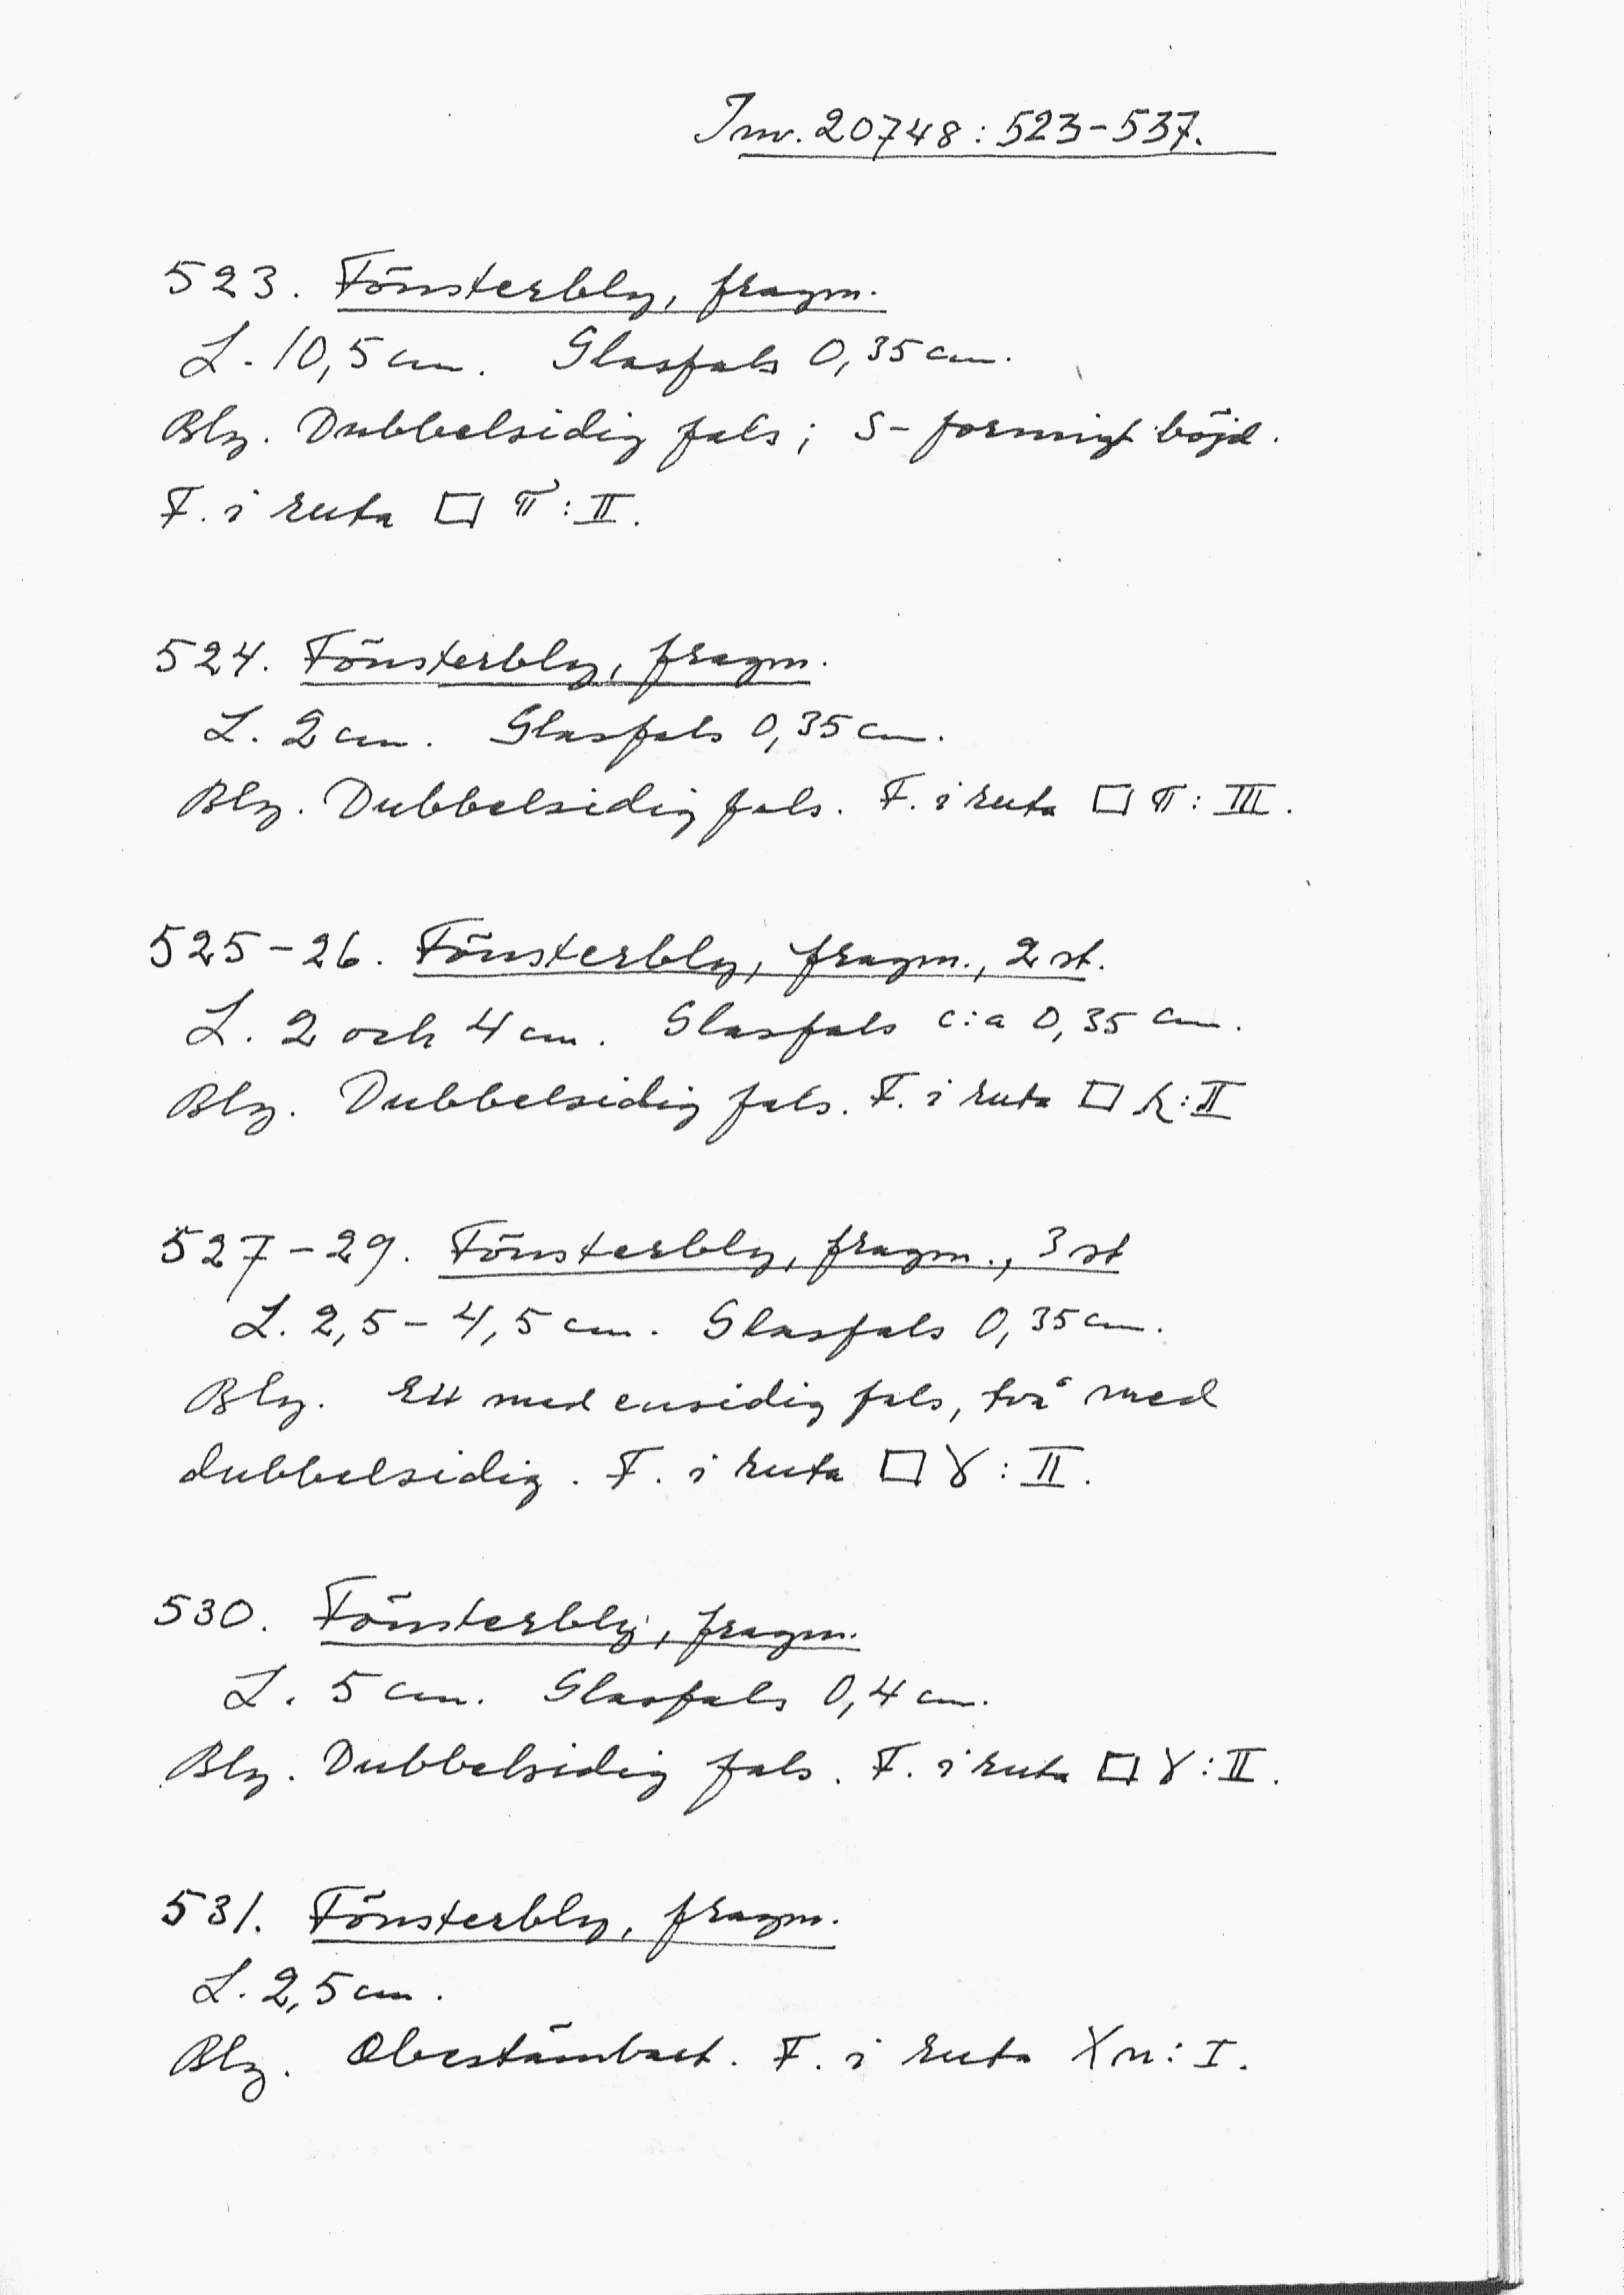 Inv. 20748:523-537.
523. Fönsterbly, fragm.
L. 10,5 cm. Glasfals 0,35 cm.
Bly. Dubbelsidig fals; S-formigt böjd.
F. i ruta □ π:II.
524. Fönsterbly, fragm.
L. 2 cm. Glasfals 0,35 cm.
Bly. Dubbelsidig fals. F. i ruta □ π:III.
525-26. Fönsterbly, fragm., 2 st.
L. 2 och 4 cm. Glasfals c:a 0,35 cm.
Bly. Dubbelsidig fals. F. i ruta □
527-29. Fönsterbly, fragm., 3 st
L. 2,5-4,5 cm. Glasfals 0,35 cm.
Bly. Ett med ensidig fals, två med
dubbelsidig. F. i ruta □ γ:II.
530. Fönsterbly, fragm.
L. 5 cm. Glasfals 0,4 cm.
Bly. Dubbelsidig fals. F. i ruta □ γ:II.
531. Fönsterbly, fragm.
L. 2,5 cm.
Bly. Obestämbart. F. i ruta Xn:I.